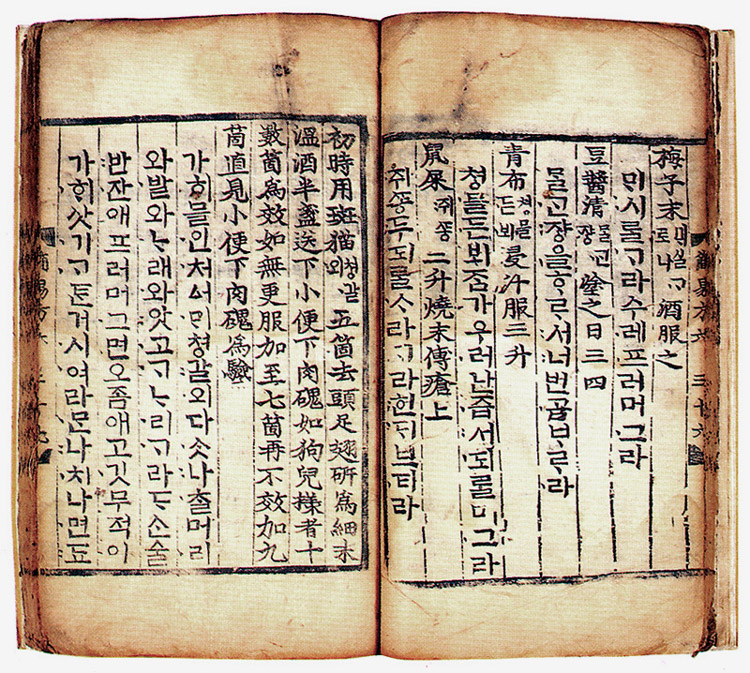 梅子末 ᄆᆡ실ᄀᆞ 酒服之
ᄆᆡ시ᄅᆞᆯᄀᆞ라수레프러머그라
豆醬清 ᄆᆞᆯᄀᆞᆫ쟝 塗之日三四
ᄆᆞᆯᄀᆞᆫ쟝을ᄒᆞᄅᆞ서너번곰ᄇᆞᄅᆞ라
青布 쳥믈든뵈 浸汁服三升
쳥믈든뵈ᄌᆞᆷ가우러난즙서되ᄅᆞᆯ머그라
鼠屎 쥐ᄯᅩᆼ 二升燒末傅瘡上
쥐ᄯᅩᆼ두되ᄅᆞᆯᄉᆞ라ᄀᆞ라헌ᄃᆡ브티라
初時用斑猫 쳥갈외 五箇去頭足翅硏爲細末
溫酒半盞送下小便下肉磈如狗兒樣者十
數箇爲效如無更服加至七箇再不效加九
箇直見小便下肉磈爲驗
가히믈인처ᅀᅥᄆᆡ쳥갈외다ᄉᆞᆺ나ᄎᆞᆯ머리
와발와ᄂᆞᆯ래와앗고ᄀᆞᄂᆞ리ᄀᆞ라ᄃᆞᄉᆞᆫ술
반잔애프러머그면오좀애고깃무적이
가히삿기ᄀᆞᄐᆞᆫ거시여라믄나치나면됴